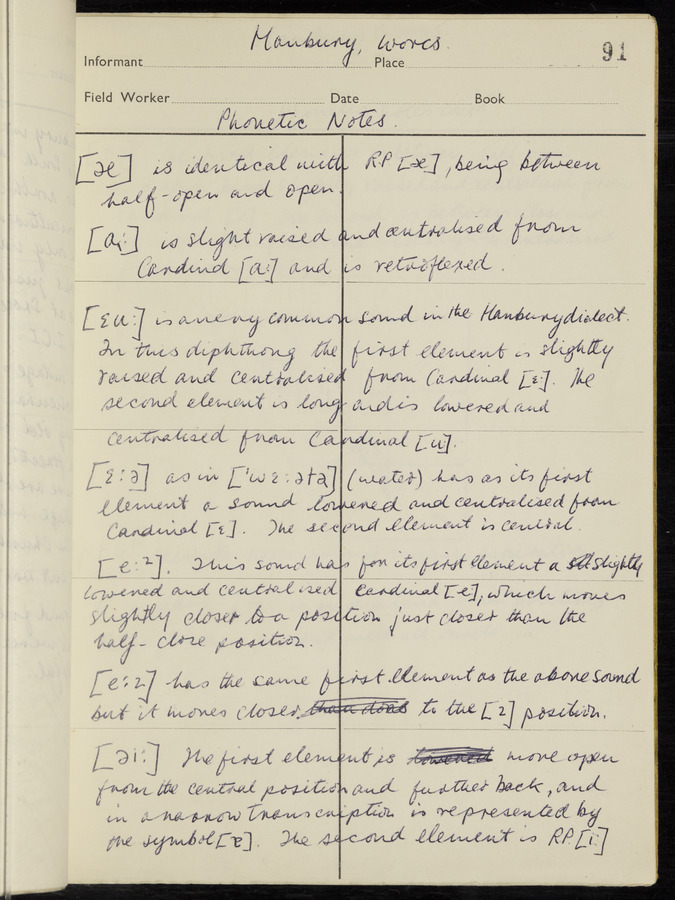 Hanbury, Worcs.
91
Informant Place
Field Worker Date Book
Phonetic Notes.
[æ] is identical with RP [æ], being between
half-open and open.
[aː] is slight raised and centralised from
Cardinal [aː] and is retroflexed.
[ɛuː] is a very common sound in the Hanbury dialect.
In this diphthong the first element is slightly
raised and centralised from Cardinal [ɛː]. The
second element is long and is lowered and
centralised from Cardinal [u].
[ɛːə] as in ['wɛːətə] (water) has as its first
element a sound lowered and centralised from
Cardinal [ɛ]. The second element is central.
[eːᶦ]. This sound has for its first element a slightly
lowered and centralised Cardinal [e], which moves
slightly closer to a position just closer than the
half-close position.
[eːɪ] has the same first element as the above sound
but it moves closer than does to the [ɪ] position.
[əiː] The first element is lowered more open
from the central position and further back, and
in a narrow transcription is represented by
the symbol [ɐ]. The second element is RP. [iː]